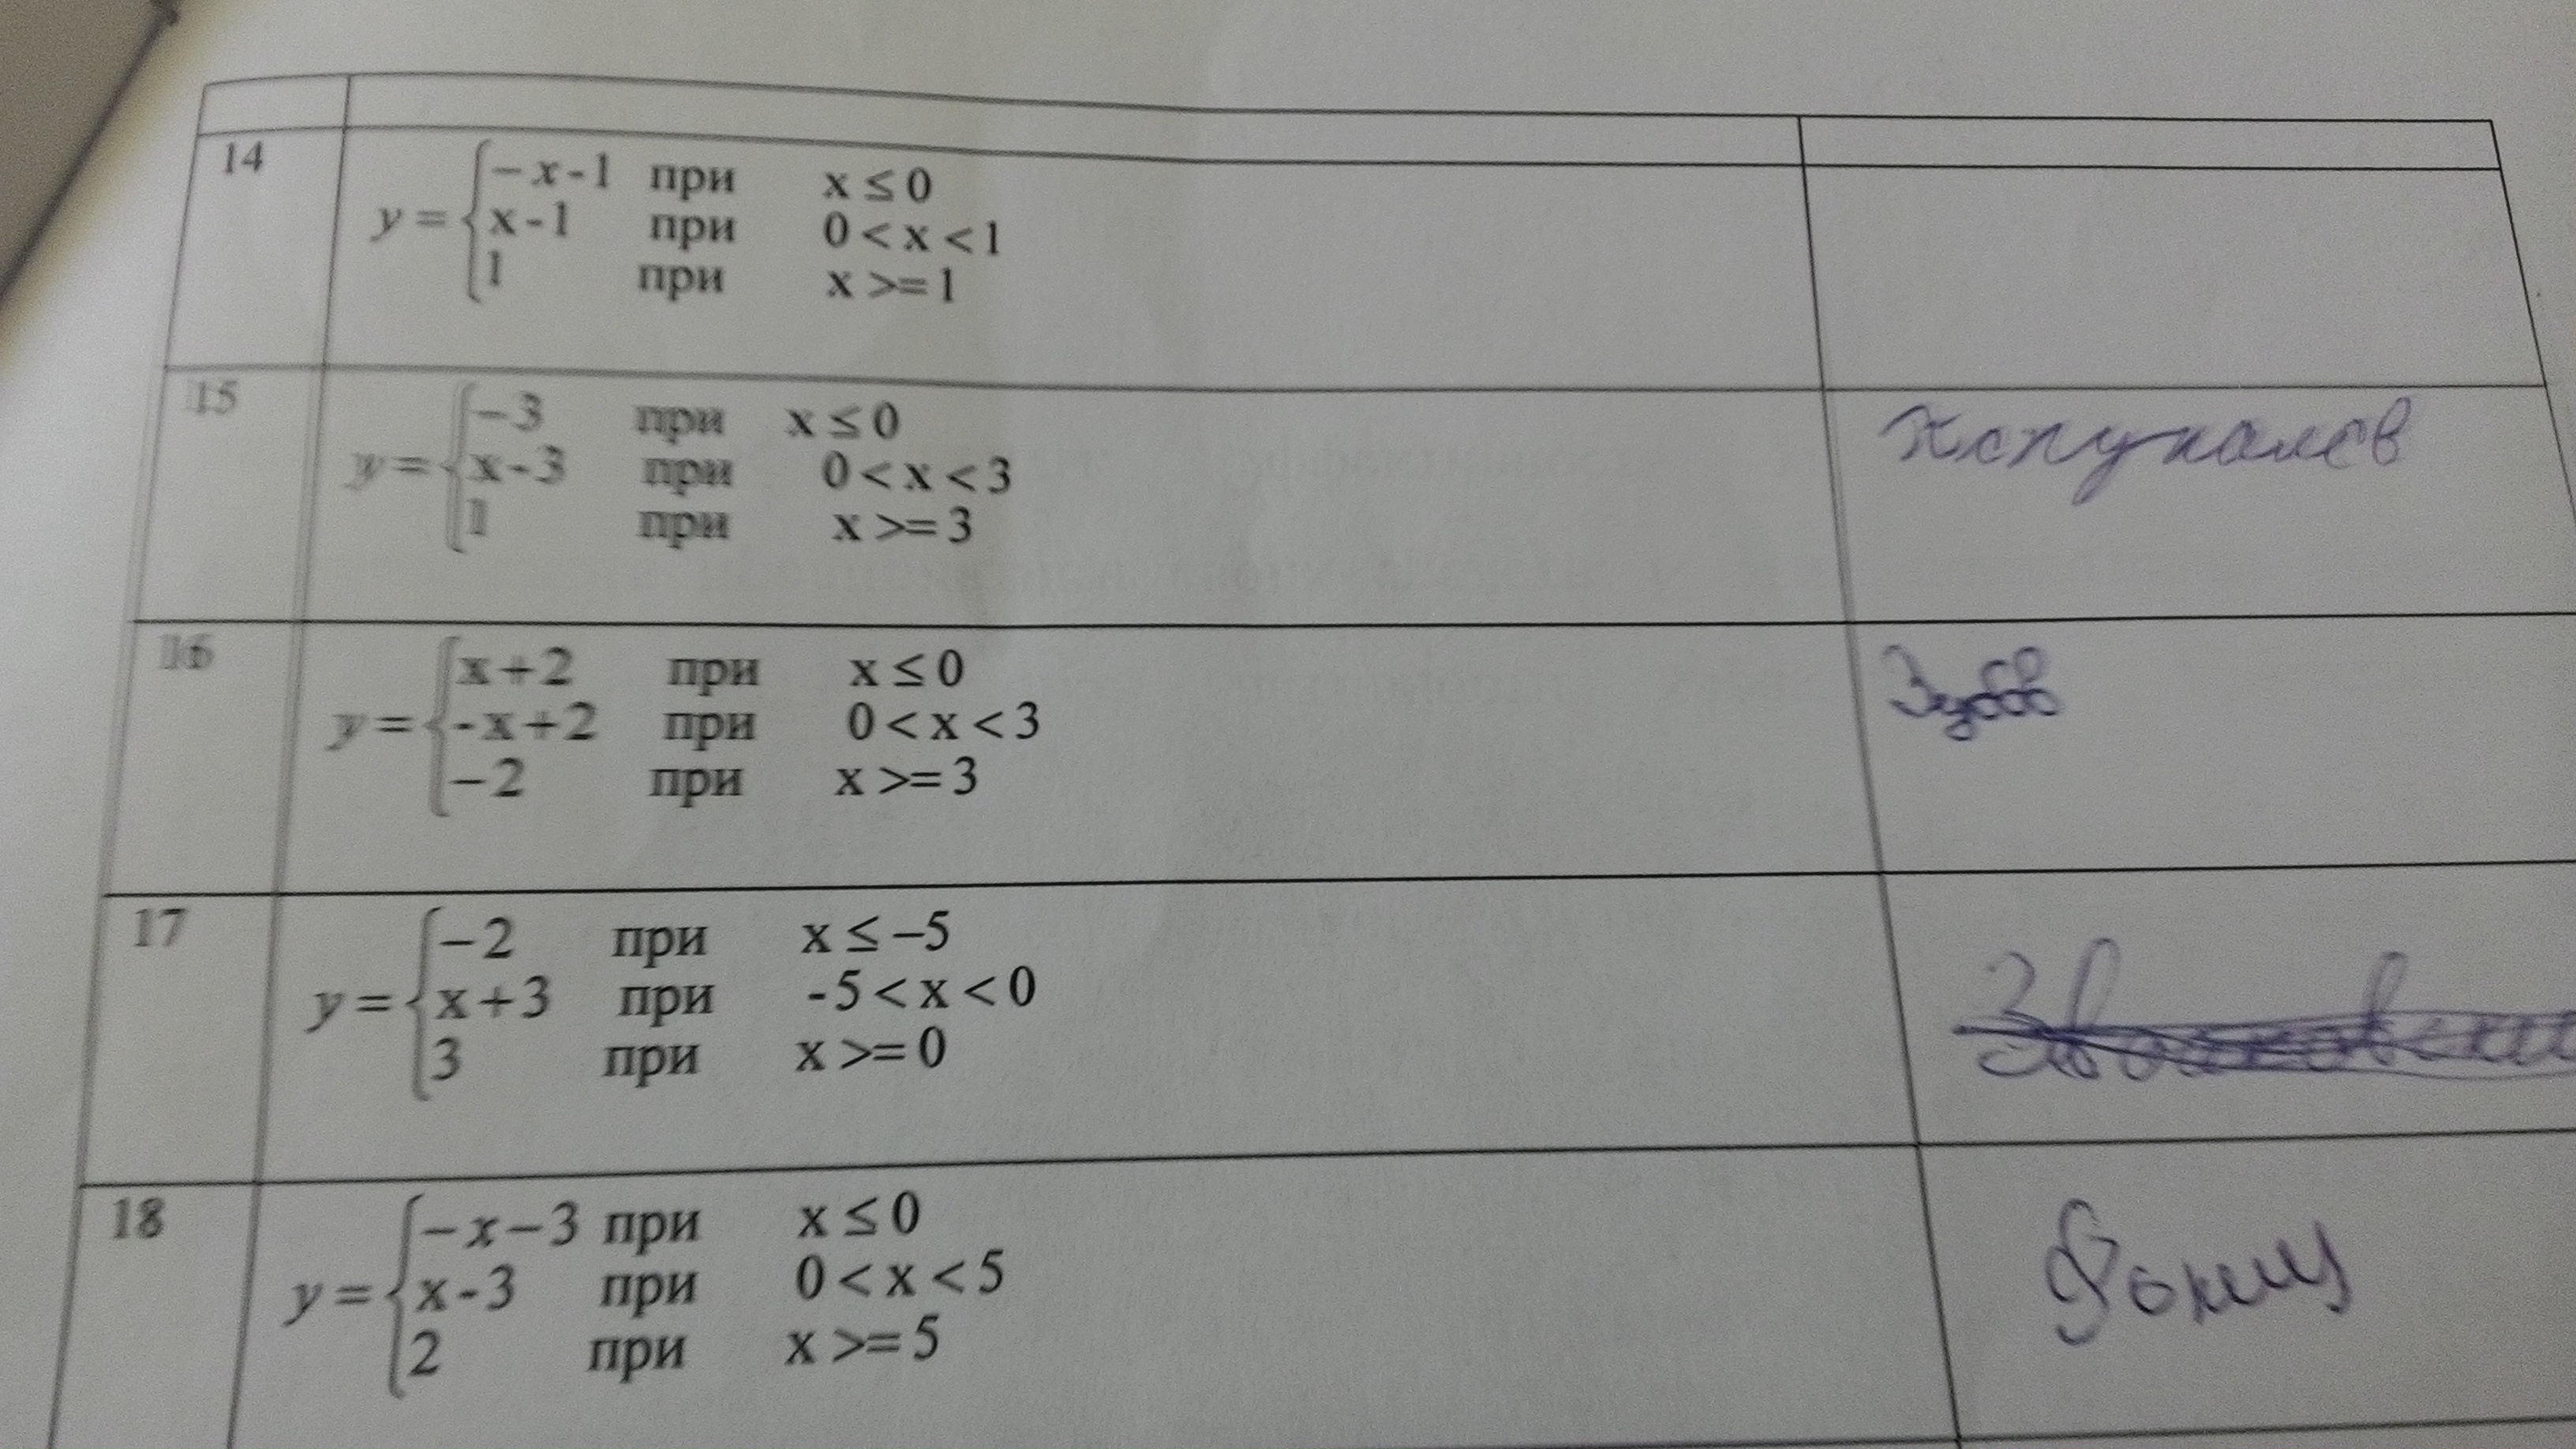 14
y = { -x-1 при x ≤ 0
x-1 при 0 < x < 1
1 при x >= 1
15
y = { -3 при x ≤ 0
x-3 при 0 < x < 3
1 при x >= 3
16
y = { x+2 при x ≤ 0
-x+2 при 0 < x < 3
-2 при x >= 3
Зубов
17
y = { -2 при x ≤ -5
x+3 при -5 < x < 0
3 при x >= 0
18
y = { -x-3 при x ≤ 0
x-3 при 0 < x < 5
2 при x >= 5